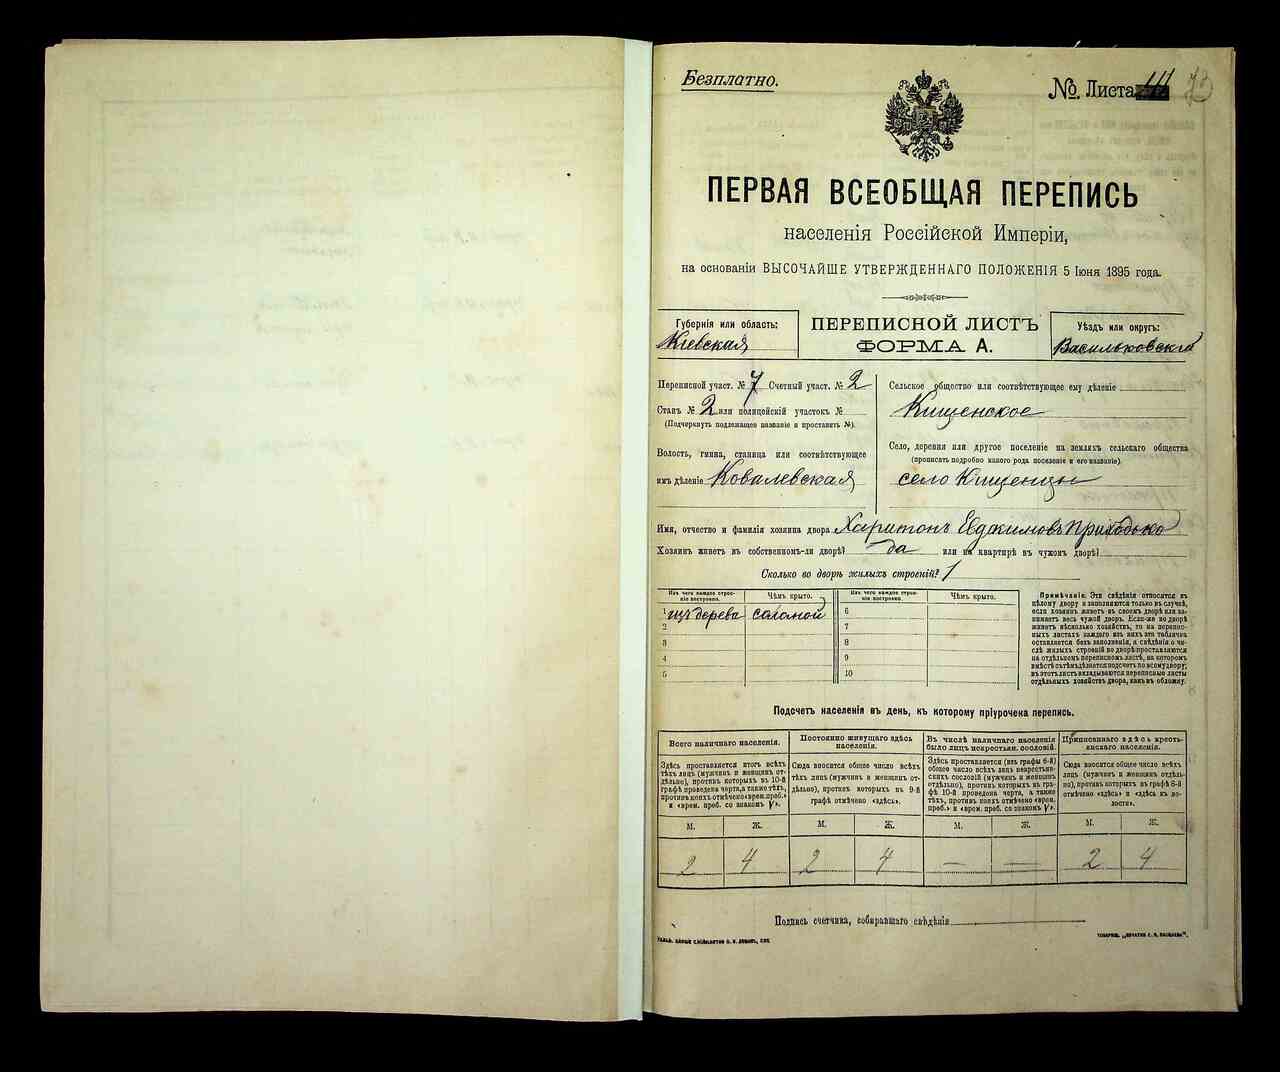 Безплатно.
№ Листа 73
ПЕРВАЯ ВСЕОБЩАЯ ПЕРЕПИСЬ
населенія Россійской Имперіи,
на основаніи ВЫСОЧАЙШЕ УТВЕРЖДЕННАГО ПОЛОЖЕНІЯ 5 Іюня 1895 года.
Губернія или область:
Кіевская
ПЕРЕПИСНОЙ ЛИСТЪ
ФОРМА А.
Уѣздъ или округъ:
Васильковскій
Переписной участ. № 7 Счетный участ. № 2
Станъ № 2 или полицейскій участокъ №
(Подчеркнуть подлежащее названіе и проставить №).
Волость, гмина, станица или соотвѣтствующее
имъ дѣленіе Ковалевская
Сельское общество или соотвѣтствующее ему дѣленіе
Кищенское
Село, деревня или другое поселеніе на земляхъ сельскаго общества
(прописать подробно какого рода поселеніе и его названіе)
село Кищенцы
Имя, отчество и фамилія хозяина двора Харитонъ Евдокимовъ Приходько
Хозяинъ живетъ въ собственномъ-ли дворѣ? да или на квартирѣ въ чужомъ дворѣ?
Сколько во дворѣ жилыхъ строеній? 1
Изъ чего каждое строеніе построено.
Чѣмъ крыто.
Изъ чего каждое строеніе построено.
Чѣмъ крыто.
1 изъ дерева соломой 6
2 7
3 8
4 9
5 10
Примѣчаніе. Эти свѣдѣнія относятся къ
цѣлому двору и заполняются только въ случаѣ,
если хозяинъ живетъ въ своемъ дворѣ или за-
нимаетъ весь чужой дворъ. Если-же во дворѣ
живетъ нѣсколько хозяйствъ, то на перепис-
ныхъ листахъ каждаго изъ нихъ эта табличка
оставляется безъ заполненія, а свѣдѣнія о чи-
слѣ жилыхъ строеній во дворѣ проставляются
на отдѣльномъ переписномъ листѣ, на которомъ
вмѣстѣ съ тѣмъ дѣлается подсчетъ по всему двору;
въ этотъ листъ вкладываются переписные листы
отдѣльныхъ хозяйствъ двора, какъ въ обложку.
Подсчетъ населенія въ день, къ которому пріурочена перепись.
Всего наличнаго населенія.
Здѣсь проставляется итогъ всѣхъ
тѣхъ лицъ (мужчинъ и женщинъ от-
дѣльно), противъ которыхъ въ 10-й
графѣ проведена черта, а также тѣхъ,
противъ коихъ отмѣчено «врем. преб.»
и «врем. преб. со знакомъ V».
Постоянно живущаго здѣсь
населенія.
Сюда вносится общее число всѣхъ
тѣхъ лицъ (мужчинъ и женщинъ от-
дѣльно), противъ которыхъ въ 9-й
графѣ отмѣчено «здѣсь».
Въ числѣ наличнаго населенія
было лицъ некрестьян. сословій.
Здѣсь проставляется (изъ графы 6-й)
общее число всѣхъ лицъ некрестьян-
скихъ сословій (мужчинъ и женщинъ
отдѣльно), противъ которыхъ въ гра-
фѣ 10 проведена черта, а также
тѣхъ, противъ коихъ отмѣчено «врем.
преб.» и «врем. преб. со знакомъ V».
Приписаннаго здѣсь кресть-
янскаго населенія.
Сюда вносится общее число всѣхъ
лицъ (мужчинъ и женщинъ отдѣль-
но), противъ которыхъ въ графѣ 8-й
отмѣчено «здѣсь» и «здѣсь въ во-
лости».
М. Ж. М. Ж. М. Ж. М. Ж.
2 4 2 4 — — 2 4
Подпись счетчика, собиравшаго свѣдѣнія